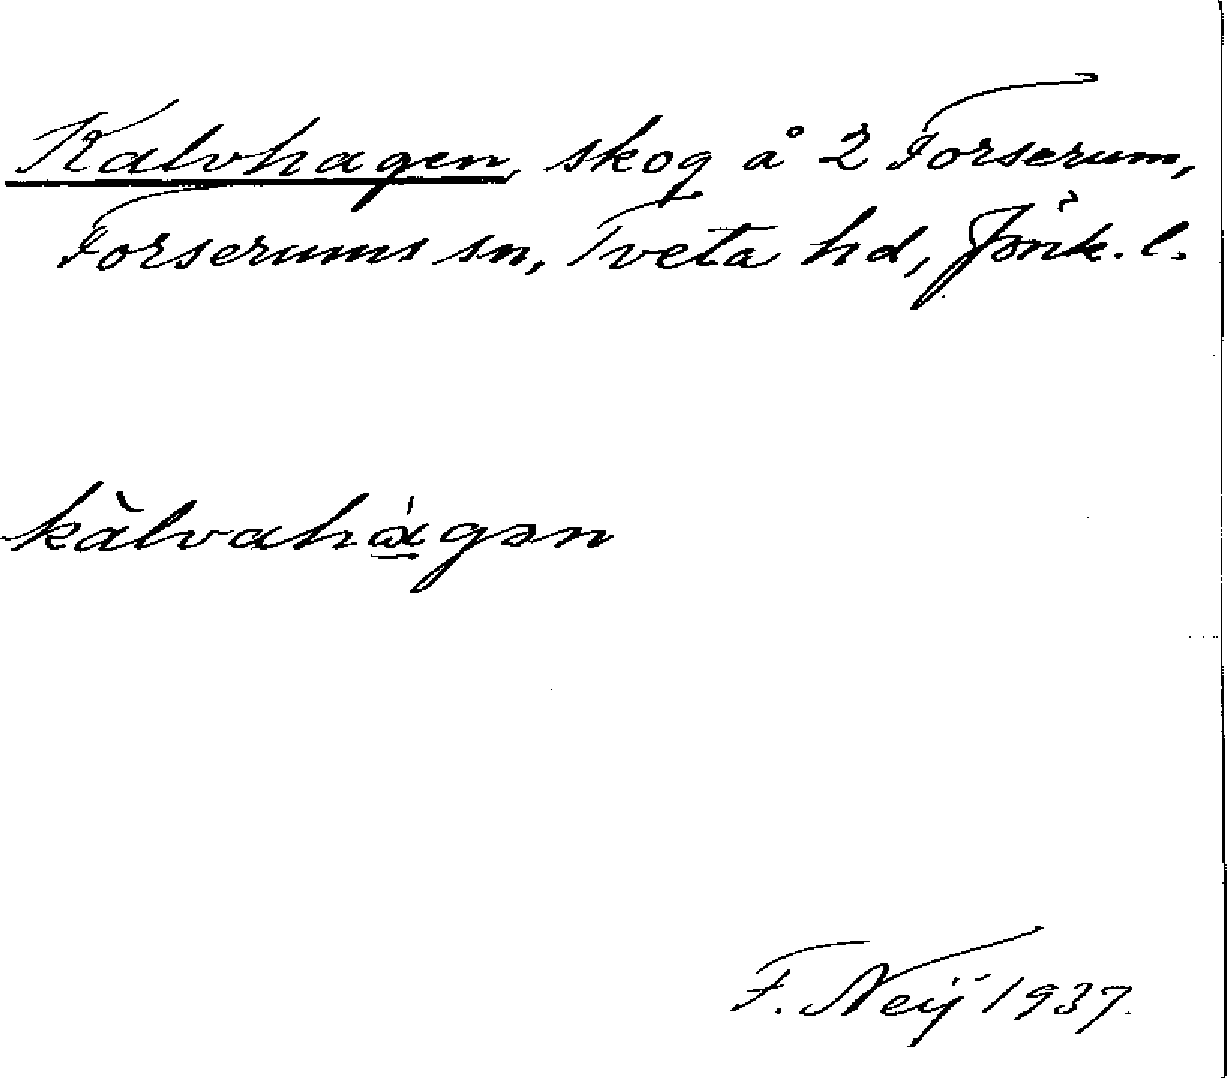 Kalvhagen, skog å 2 Forserum,
Forserums sn, Tveta hd, Jönk. l.
kàlvahá̱gən
F. Neij 1937.